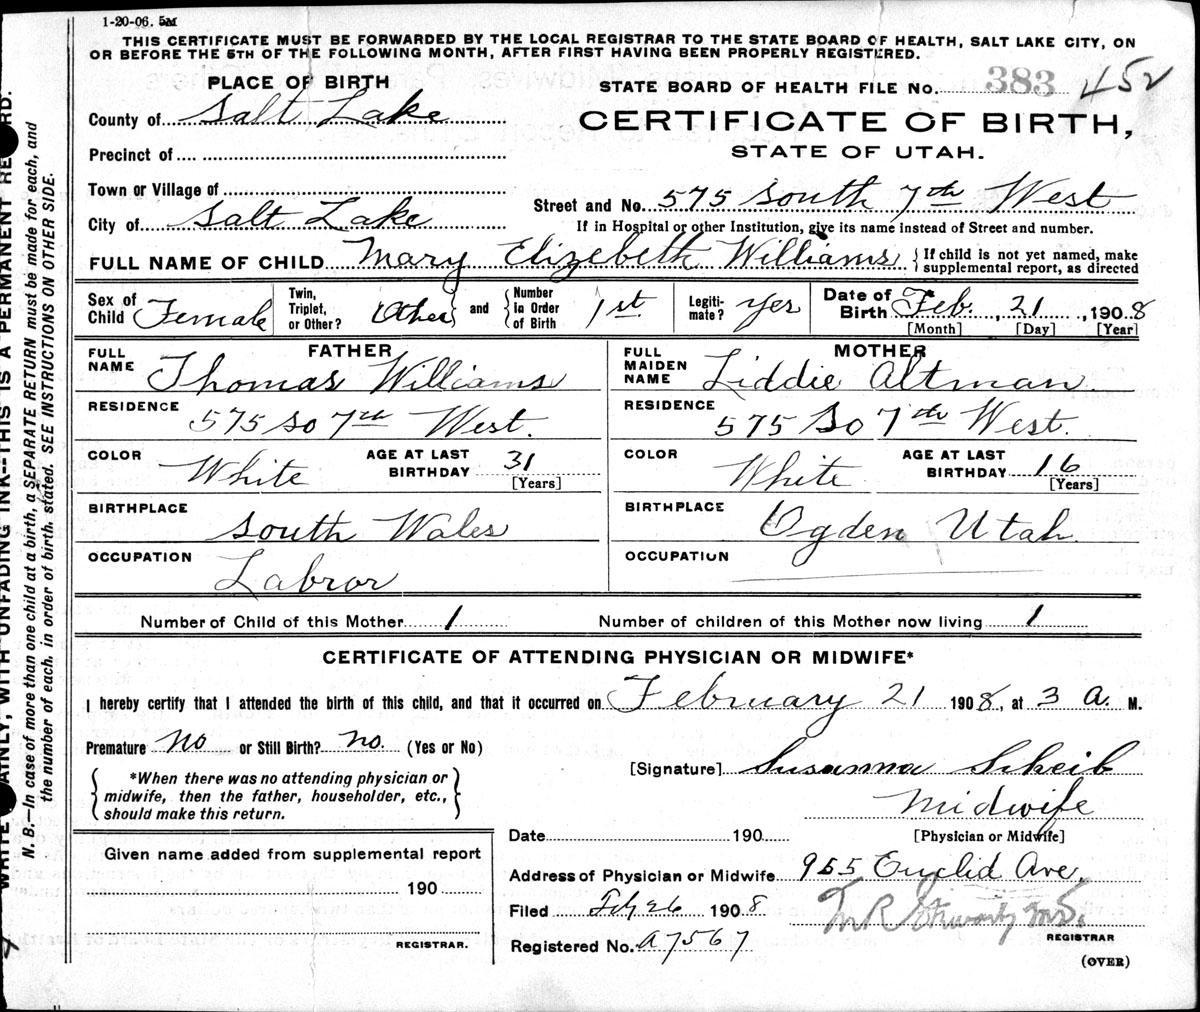 1-20-06. 5M
THIS CERTIFICATE MUST BE FORWARDED BY THE LOCAL REGISTRAR TO THE STATE BOARD OF HEALTH, SALT LAKE CITY, ON
OR BEFORE THE 5TH OF THE FOLLOWING MONTH, AFTER FIRST HAVING BEEN PROPERLY REGISTERED.
PLACE OF BIRTH
STATE BOARD OF HEALTH FILE No. 383 452
County of Salt Lake
CERTIFICATE OF BIRTH,
Precinct of
STATE OF UTAH.
Town or Village of
Street and No. 575 South 7th West
City of Salt Lake
If in Hospital or other Institution, give its name instead of Street and number.
FULL NAME OF CHILD Mary Elizebeth Williams {If child is not yet named, make
supplemental report, as directed
Sex of Child Female
Twin, Triplet, or Other? Other} and {Number in Order of Birth 1st
Legitimate? Yes
Date of Birth Feb. 21, 1908
[Month] [Day] [Year]
FATHER
FULL NAME Thomas Williams
RESIDENCE 575 So 7th West.
COLOR White AGE AT LAST BIRTHDAY 31
[Years]
BIRTHPLACE South Wales
OCCUPATION Labror
MOTHER
FULL MAIDEN NAME Liddie Altman
RESIDENCE 575 So 7th West.
COLOR White AGE AT LAST BIRTHDAY 16
[Years]
BIRTHPLACE Ogden Utah
OCCUPATION
Number of Child of this Mother 1 Number of children of this Mother now living 1
CERTIFICATE OF ATTENDING PHYSICIAN OR MIDWIFE*
I hereby certify that I attended the birth of this child, and that it occurred on February 21 1908, at 3 a. M.
Premature no or Still Birth? no. (Yes or No)
{*When there was no attending physician or
midwife, then the father, householder, etc.,
should make this return.}
[Signature] Susanna Scheib
Midwife
[Physician or Midwife]
Date 190
Address of Physician or Midwife 955 Euclid Ave.
Filed Feb 26 1908
REGISTRAR
Registered No. A7567
(OVER)
Given name added from supplemental report
190
REGISTRAR.
AINLY, WITH UNFADING INK--THIS IS A PERMANENT
N. B.—In case of more than one child at a birth, a SEPARATE RETURN must be made for each, and
the number of each, in order of birth, stated. SEE INSTRUCTIONS ON OTHER SIDE.